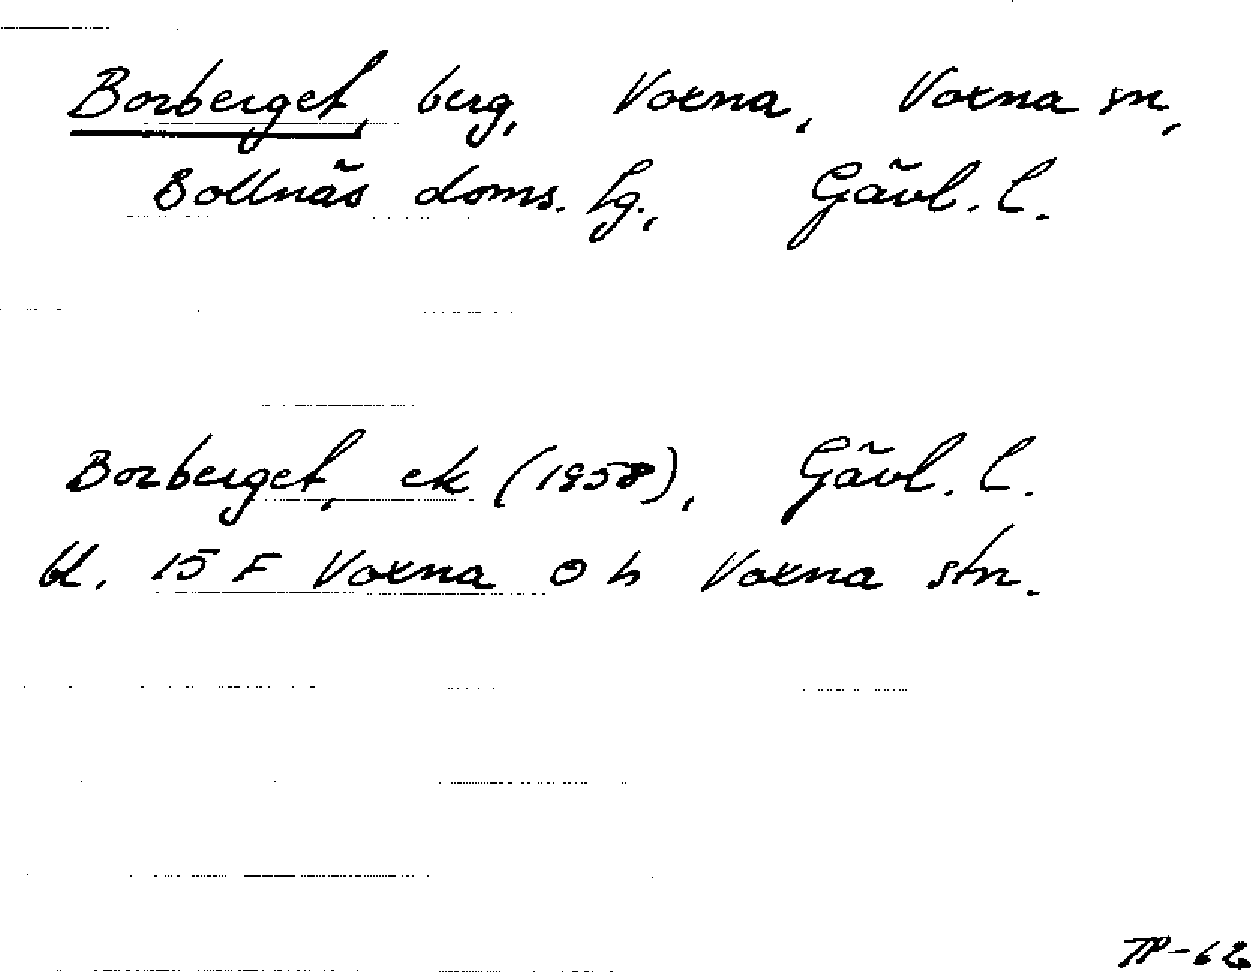 Borberget, berg, Voxna, Voxna sn,
Bollnäs doms. lg., Gävl. l.
Borberget, ek (1958), Gävl. l.
bl. 15 F Voxna o h Voxna stn.
TP-62